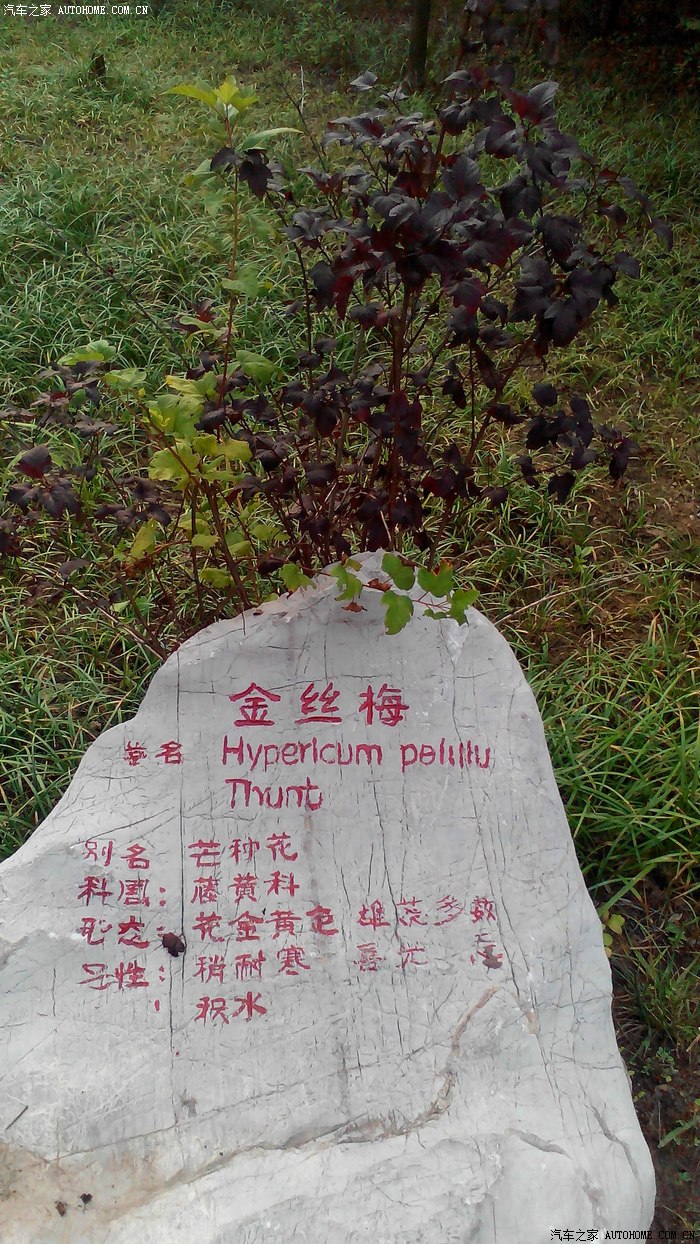 汽车之家 AUTOHOME.COM.CN
金丝梅
学名 Hypericum patulu
Thunt
别名 芒种花
科属: 藤黄科
形态: 花金黄色 雄蕊多数
习性: 稍耐寒 喜光 忌
积水
汽车之家 AUTOHOME.COM.CN